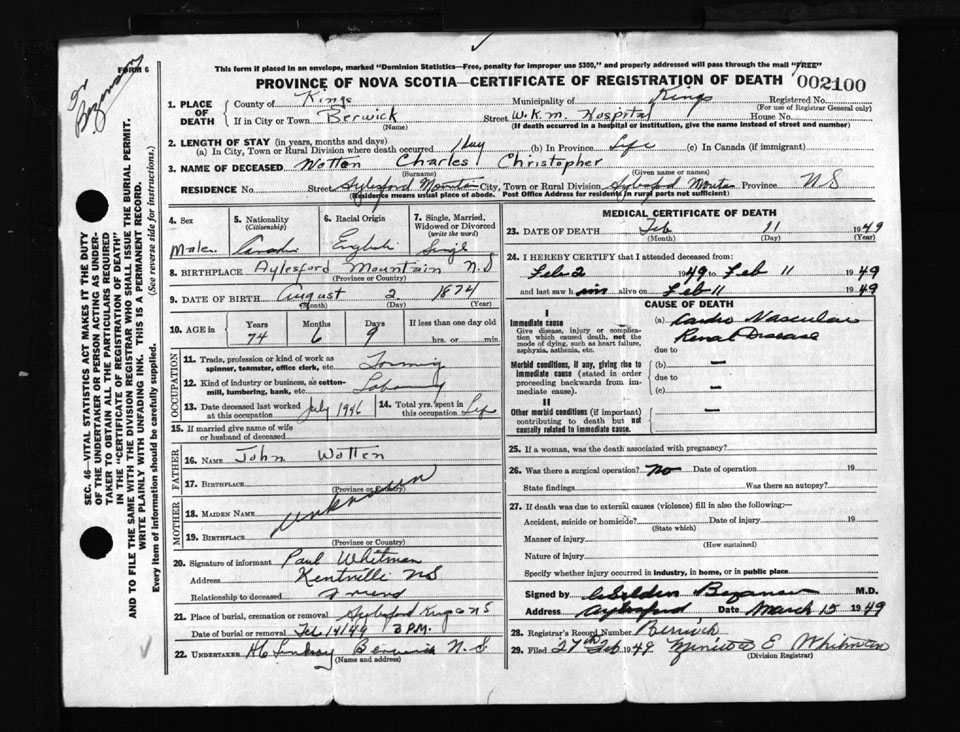 This form if placed in an envelope, marked "Dominion Statistics—Free, penalty for improper use $300," and properly addressed will pass through the mail "FREE"
FORM 6
PROVINCE OF NOVA SCOTIA—CERTIFICATE OF REGISTRATION OF DEATH
002100
Dr Bezanson
SEC. 46—VITAL STATISTICS ACT MAKES IT THE DUTY
OF THE UNDERTAKER OR PERSON ACTING AS UNDER-
TAKER TO OBTAIN ALL THE PARTICULARS REQUIRED
IN THE "CERTIFICATE OF REGISTRATION OF DEATH"
AND TO FILE THE SAME WITH THE DIVISION REGISTRAR WHO SHALL ISSUE THE BURIAL PERMIT.
WRITE PLAINLY WITH UNFADING INK. THIS IS A PERMANENT RECORD.
Every item of information should be carefully supplied. (See reverse side for instructions.)
1. PLACE OF DEATH County of Kings Municipality of Kings Registered No.
(For use of Registrar General only)
If in City or Town Berwick Street W.K.M. Hospital House No.
(Name) (If death occurred in a hospital or institution, give the name instead of street and number)
2. LENGTH OF STAY (in years, months and days)
(a) In City, Town or Rural Division where death occurred 1 day (b) In Province Life (c) In Canada (if immigrant)
3. NAME OF DECEASED Wotten Charles Christopher
(Surname) (Given name or names)
RESIDENCE No. Street Aylesford Mountain City, Town or Rural Division Aylesford Mountain Province NS
(Residence means usual place of abode. Post Office Address for residents in rural parts not sufficient)
4. Sex
Male
5. Nationality
(Citizenship)
6. Racial Origin
English
7. Single, Married,
Widowed or Divorced
(write the word)
Single
8. BIRTHPLACE Aylesford Mountain N.S
(Province or Country)
9. DATE OF BIRTH August 2 1874
(Month) (Day) (Year)
10. AGE in Years Months Days If less than one day old
74 6 9 hrs. or min.
OCCUPATION
11. Trade, profession or kind of work as
spinner, teamster, office clerk, etc.
12. Kind of industry or business, as cotton-
mill, lumbering, bank, etc.
13. Date deceased last worked
at this occupation July 1946
14. Total yrs. spent in
this occupation Life
15. If married give name of wife
or husband of deceased
FATHER
16. NAME John Wotten
17. BIRTHPLACE
(Province or Country)
unknown
MOTHER
18. MAIDEN NAME
19. BIRTHPLACE
(Province or Country)
20. Signature of informant Paul Whitman
Address Kentville NS
Relationship to deceased Friend
21. Place of burial, cremation or removal Aylesford Kings NS
Date of burial or cremation Feb 14/49 3 P.M.
22. UNDERTAKER Lindsay Berwick N.S.
(Name and address)
MEDICAL CERTIFICATE OF DEATH
23. DATE OF DEATH Feb 11 1949
(Month) (Day) (Year)
24. I HEREBY CERTIFY that I attended deceased from:
Feb 2 1949 to Feb 11 1949
and last saw him alive on Feb 11 1949
CAUSE OF DEATH
I
Immediate cause
Give disease, injury or complica-
tion which caused death, not the
mode of dying, such as heart failure,
asphyxia, asthenia, etc.
(a) Cardio Vascular
Renal Disease
due to
Morbid conditions, if any, giving rise to
immediate cause (stated in order
proceeding backwards from im-
mediate cause).
(b) —
due to
(c) —
II
Other morbid conditions (if important)
contributing to death but not
causally related to immediate cause.
—
25. If a woman, was the death associated with pregnancy?
26. Was there a surgical operation? No Date of operation 19
State findings Was there an autopsy?
27. If death was due to external causes (violence) fill in also the following:—
Accident, suicide or homicide? Date of injury 19
(State which)
Manner of injury
(How sustained)
Nature of injury
Specify whether injury occurred in industry, in home, or in public place
Signed by Bezanson M.D.
Address Aylesford Date March 15 1949
28. Registrar's Record Number Berwick
29. Filed 27th Feb 1949 E Whitman
(Division Registrar)